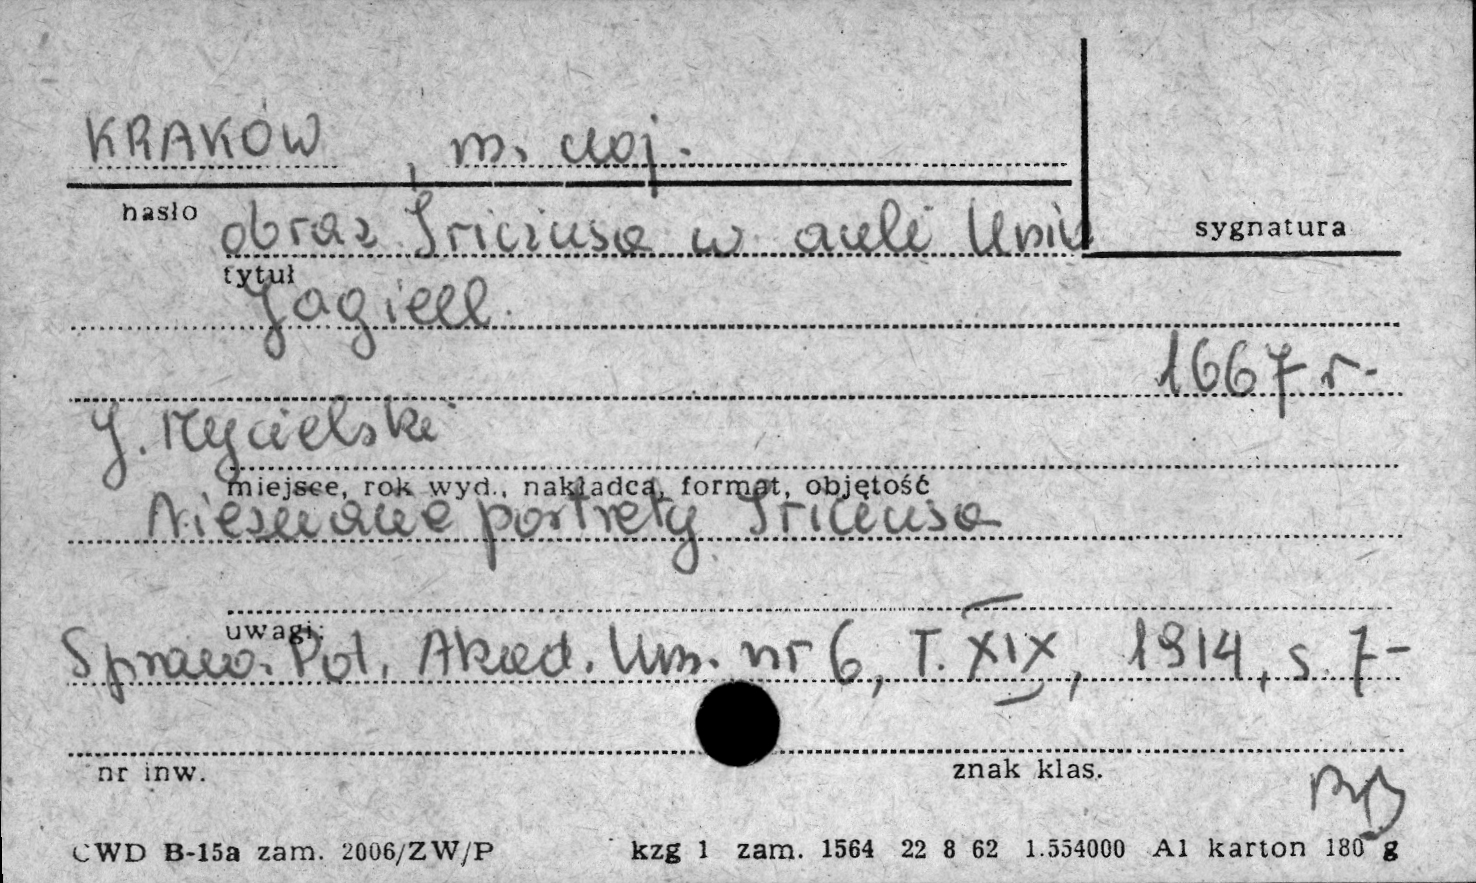 KRAKÓW, m. woj.
hasło
obraz Triciusa w auli Univ
sygnatura
tytuł
Jagiell.
1667 r.
J. Mycielski
miejsce, rok wyd., nakładca, format, objętość
Nieznane portrety Triciusa
uwagi:
Spraw. Pol. Akad. Um. nr 6, T. XIX, 1914, s. 7-
nr inw.
znak klas.
CWD B-15a zam. 2006/ZW/P kzg 1 zam. 1564 22 8 62 1.554000 A1 karton 180 g